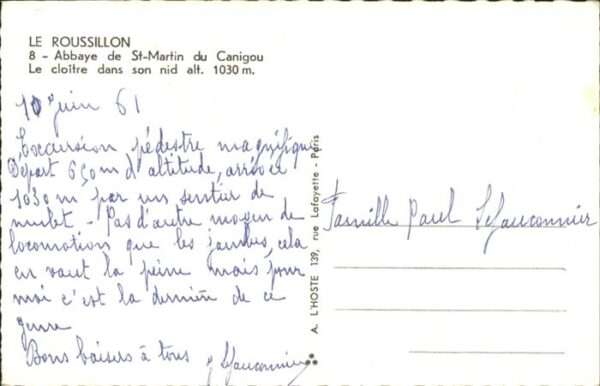 LE ROUSSILLON
8 - Abbaye de St-Martin du Canigou
Le cloître dans son nid alt. 1030 m.
10 juin 61
Excursion pédestre magnifique
Départ 650m d'altitude, arrivée
1030 m par un sentier de
mulet - Pas d'autre moyen de
locomotion que les jambes, cela
en vaut la peine mais pour
moi c'est la dernière de ce
genre
Bons baisers à tous Lefauconnier
A. L'HOSTE 139, rue Lafayette - Paris
Famille Paul Lefauconnier